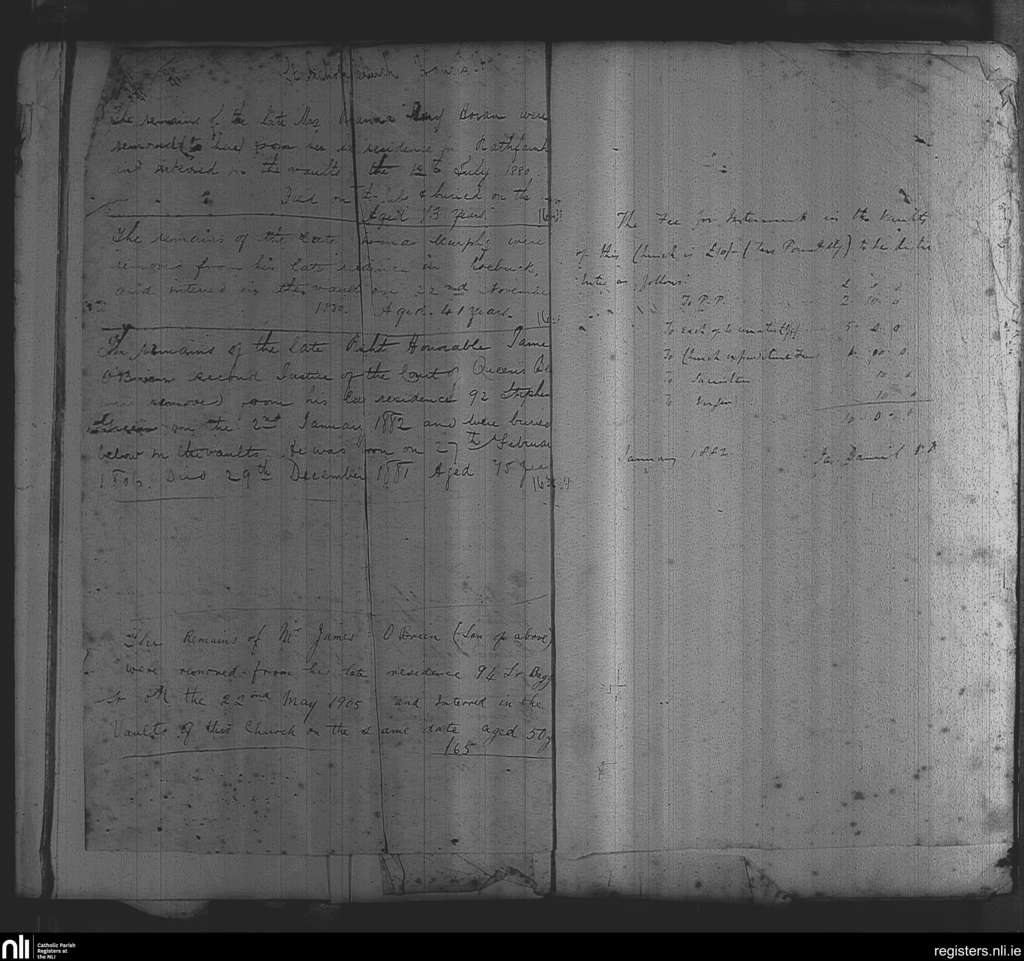 The remains of the late Mrs Mary Horan were
removed here from her residence in Rathfarnh
and interred in the vaults the July 1880
Died on July & buried on the
Aged 73 years
The remains of the late Thomas Murphy were
removed from his late residence in Roebuck,
and interred in the vault on 22nd November
1880. Aged 41 years.
The remains of the late Right Honorable James
O'Brien second Justice of the Court Queens Be
were removed from his late residence 92 Stephen
Green on the 2nd January 1882 and were buried
below in the vaults. He was born on 27th Februar
1806. Died 29th December 1881 Aged 75 years
The Remains of Mr James O Brien (Son of above)
were removed from his late residence 94 Lr Bagg
St on the 22nd May 1905 and Interred in the
Vaults of this Church on the same date aged 50 y
165
The Fee for Interment in the Vaults
of this Church is £10/- (Ten Pounds) to be distri
buted as follows
£ s d
To P.P. 2 10 0
To each of
To Church
To Sacristan 10 0
To 10 0
10 0 0
January 1882 Jas Daniel P.P.
nli
Catholic Parish
Registers at
the NLI
registers.nli.ie